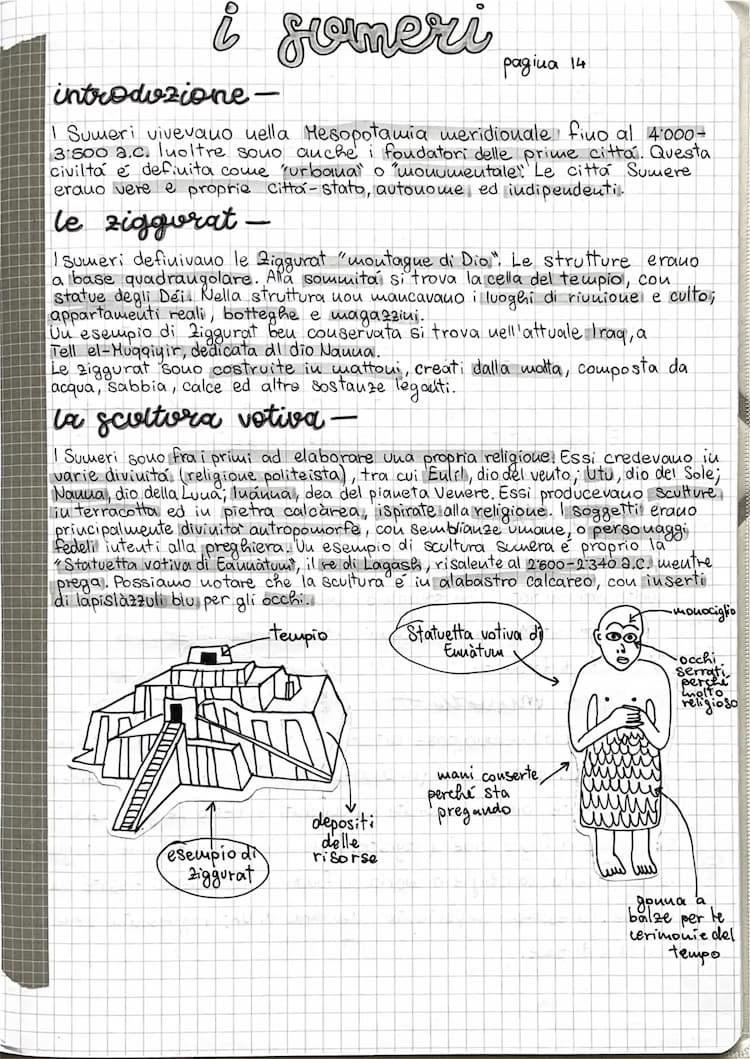 i sumeri
pagina 14
introduzione —
I Sumeri vivevano nella Mesopotamia meridionale, fino al 4'000-
3'500 a.C. Inoltre sono anche i fondatori delle prime città. Questa
civiltà è definita come "urbana" o "monumentale". Le città Sumere
erano vere e proprie città-stato, autonome, ed indipendenti.
le ziggurat —
I Sumeri definivano le Ziggurat "montagne di Dio". Le strutture erano
a base quadrangolare. Alla sommità si trova la cella del tempio, con
statue degli Dèi. Nella struttura non mancavano i luoghi di riunione e culto,
appartamenti reali, botteghe e magazzini.
Un esempio di Ziggurat ben conservata si trova nell'attuale Iraq, a
Tell el-Muqqiyir, dedicata al dio Nanna.
Le ziggurat sono costruite in mattoni, creati dalla malta, composta da
acqua, sabbia, calce ed altre sostanze leganti.
la scultura votiva —
I Sumeri sono fra i primi ad elaborare una propria religione. Essi credevano in
varie divinità (religione politeista), tra cui Enlil, dio del vento; Utu, dio del Sole;
Nanna, dio della Luna; Inànna, dea del pianeta Venere. Essi producevano sculture
in terracotta ed in pietra calcàrea, ispirate alla religione. I soggetti erano
principalmente divinità antropomorfe, con semblianze umane, o personaggi
fedeli intenti alla preghiera. Un esempio di scultura sumera è proprio la
"Statuetta votiva di Eannàtum", il re di Lagash, risalente al 2'600-2'340 a.C. mentre
prega. Possiamo notare che la scultura è in alabastro calcareo, con inserti
di lapislàzzuli blu, per gli occhi.
tempio
depositi
delle
risorse
esempio di
ziggurat
Statuetta votiva di
Ennàtum
monociglio
occhi
serrati
perché
molto
religioso
mani conserte
perché sta
pregando
gonna a
balze per le
cerimonie del
tempo